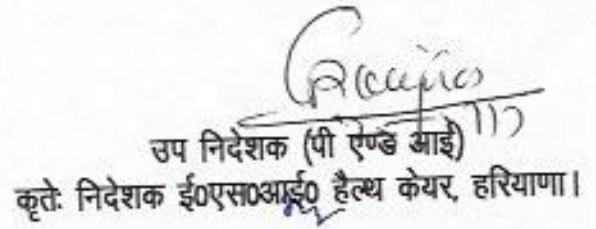 उप निदेशक (पी ऐण्ड आई)
कृतेः निदेशक ई0एस0आई0 हैल्थ केयर, हरियाणा।